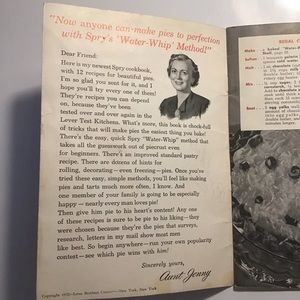 "Now anyone can make pies to perfection
with Spry's "Water-Whip" Method!"
Dear Friend:
Here is my newest Spry cookbook,
with 12 recipes for beautiful pies.
I'm so glad you sent for it, and I
hope you'll try every one of them!
They're recipes you can depend
on, because they've been
tested over and over again in the
Lever Test Kitchens. What's more, this book is chock-full
of tricks that will make pies the easiest thing you bake!
There's the easy, quick Spry "Water-Whip" method that
takes all the guesswork out of piecrust even
for beginners. There's an improved standard pastry
recipe. There are dozens of hints for
rolling, decorating – even freezing – pies. Once you've
tried these easy, simple methods, you'll feel like making
pies and tarts much more often, I know. And
one member of your family is going to be especially
happy – nearly every man loves pie!
Then give him pie to his heart's content! Any of
these recipes is sure to be pie to his liking – they
were chosen because they're the pies that surveys,
research, letters in my mail show most men
like best. So begin anywhere – run your own popularity
contest – see which pie wins with him!
Sincerely yours,
Aunt Jenny
Lever Brothers Company, New York, New York
REGAL C